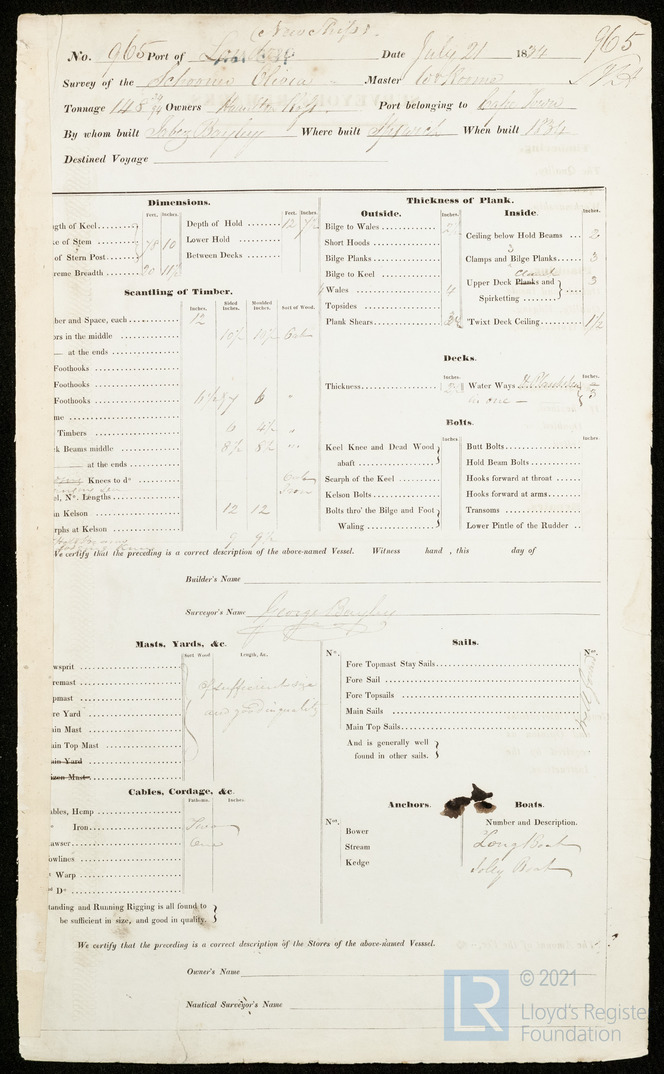 New Ship
No. 965 Port of London Date July 21 1834 965
Survey of the Schooner Olivia Master Wm
Tonnage 148 Owners Hamilton Ross Port belonging to Cape Town
By whom built Jabez Bayley Where built Ipswich When built 1834
Destined Voyage
Dimensions.
Feet. Inches.
ngth of Keel
ke of Stem 78 10
of Stern Post
reme Breadth 20
Feet. Inches.
Depth of Hold 12
Lower Hold
Between Decks
Scantling of Timber.
Inches. Sided Inches. Moulded Inches. Sort of Wood.
ber and Space, each 12
ors in the middle 10½ 10½ Oak
— at the ends
Foothooks
Foothooks
Foothooks 6
me
Timbers 6 4½ "
k Beams middle 8½ 8½ "
at the ends
Knees to do
el, No. Lengths Iron
in Kelson 12 12
rphs at Kelson
Thickness of Plank.
Outside. Inches.
Bilge to Wales
Short Hoods
Bilge Planks
Bilge to Keel
Wales 4
Topsides
Plank Shears
Inside. Inches.
Ceiling below Hold Beams 2
Clamps and Bilge Planks 3
3
Clamps
Upper Deck Planks and Spirketting 3
'Twixt Deck Ceiling 1½
Decks.
Inches. Inches.
Thickness Water Ways & Plansheer 3
in one —
Bolts.
Inches. Inches.
Keel Knee and Dead Wood
abaft
Scarph of the Keel
Kelson Bolts
Bolts thro' the Bilge and Foot
Waling
Butt Bolts
Hold Beam Bolts
Hooks forward at throat
Hooks forward at arms
Transoms
Lower Pintle of the Rudder
We certify that the preceding is a correct description of the above-named Vessel. Witness hand, this day of
Builder's Name
Surveyor's Name George Bayley
Masts, Yards, &c.
Sort Wood Length, &c.
wsprit
remast
pmast
re Yard
ain Mast
ain Top Mast
ain Yard
izen Mast
of sufficient size
and good in quality
Sails.
No. No.
Fore Topmast Stay Sails
Fore Sail
Fore Topsails
Main Sails
Main Top Sails
And is generally well
found in other sails.
Well found
Cables, Cordage, &c.
Fathoms. Inches.
ables, Hemp
" Iron Two
awser One
owlines
" Warp
" Do
tanding and Running Rigging is all found to
be sufficient in size, and good in quality.
Anchors.
Nos.
Bower
Stream
Kedge
Boats.
Number and Description.
Long Boat
Jolly Boat
We certify that the preceding is a correct description of the Stores of the above-named Vesssel.
Owner's Name
Nautical Surveyor's Name
LR
© 2021
Lloyd's Register
Foundation